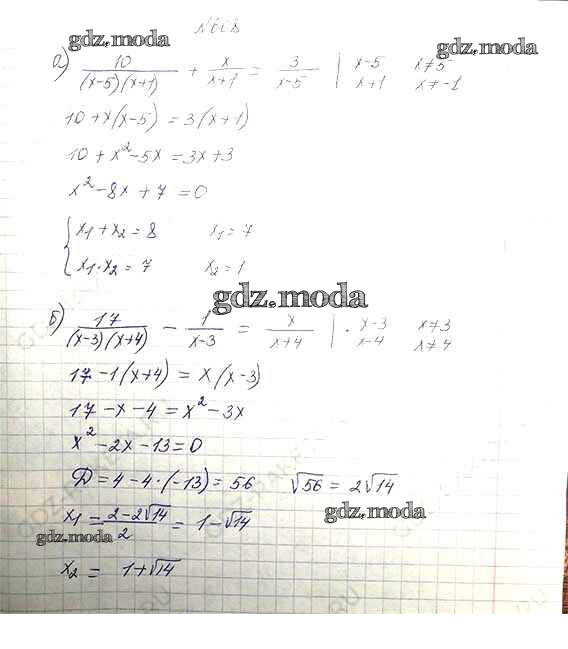 gdz.moda gdz.moda
а) 10/((x-5)(x+1)) + x/(x+1) = 3/(x-5) | x-5 x≠5
x+1 x≠-1
10+x(x-5) = 3(x+1)
10+x²-5x = 3x+3
x²-8x+7=0
{ x₁+x₂=8 x₁=7
x₁·x₂=7 x₂=1
gdz.moda
б) 17/((x-3)(x+4)) - 1/(x-3) = x/(x+4) | · x-3 x≠3
x-4 x≠4
17-1(x+4) = x(x-3)
17-x-4=x²-3x
x²-2x-13=0
D=4-4·(-13)=56 √56=2√14
gdz.moda
x₁ = (2-2√14)/2 = 1-√14
gdz.moda
x₂ = 1+√14